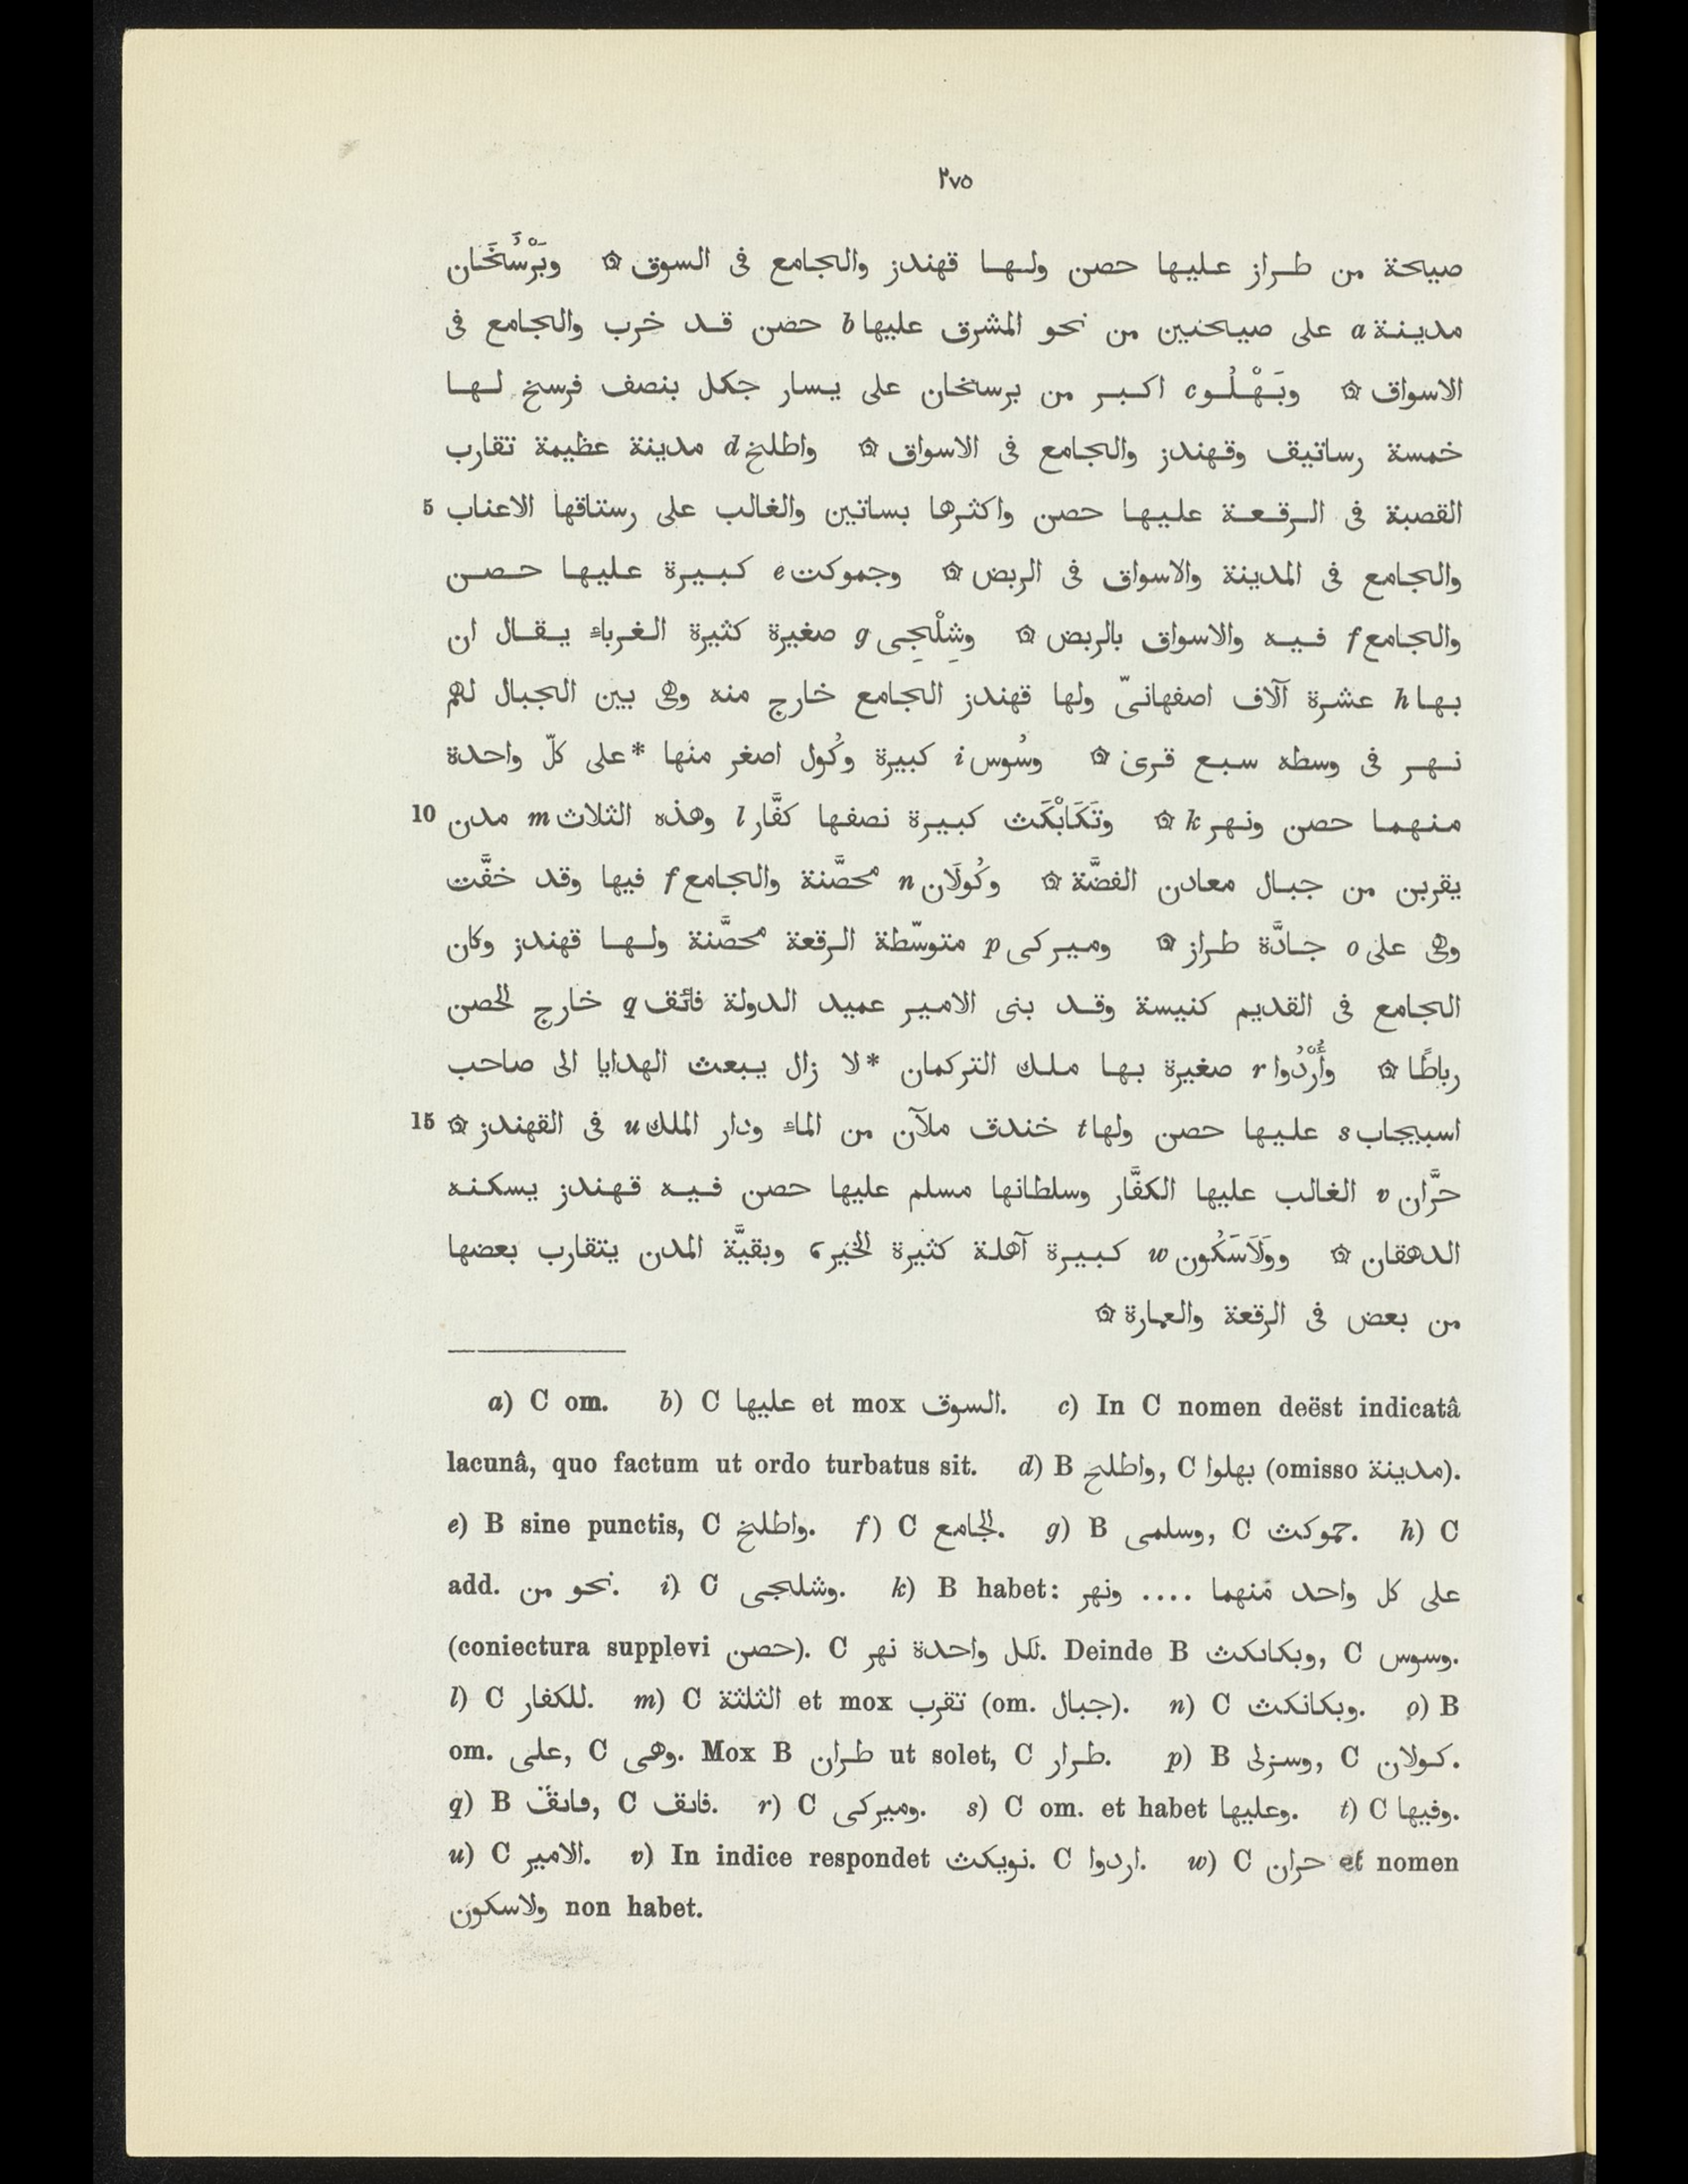 ٢٧٥
صيحة من طراز عليها حصن ولها قهندز والجامع فى السوق ۞ وبَرْسُخَان
مدينة a على صيحتين من نحو المشرق عليها b حصن قد خرب والجامع فى
الاسواق ۞ وبَهْلُو c اكبر من برسخان على يسار جكل بنصف فرسخ لها
خمسة رساتيف وقهندز والجامع فى الاسواق ۞ واطلخ d مدينة عظيمة تقارب
القصبة فى الرقعة عليها حصن واكثرها بساتين والغالب على رستاقها الاعناب 5
والجامع فى المدينة والاسواق فى الربض ۞ وجموكت e كبيرة عليها حصن
والجامع f فيه والاسواق بالربض ۞ وشِلْجِى g صغيرة كثيرة الغرباء يقال ان
بها h عشرة آلاف اصفهانىّ ولها قهندز الجامع خارج منه وهى بين الجبال لهم
نهر فى وسطه سبع قرى ۞ وسُوس i كبيرة وكُول اصغر منها *على كلّ واحدة
منهما حصن ونهر k ۞ وتَكَابْكَث كبيرة نصفها كفَّار l وهذه الثلاث m مدن 10
يقربن من جبال معادن الفضَّة ۞ وكُولَان n محصَّنة والجامع f فيها وقد خفَّت
وهى على o جادَّة طراز ۞ وميركى p متوسّطة الرقعة محصَّنة ولها قهندز وكان
الجامع فى القديم كنيسة وقد بنى الامير عميد الدولة فائق q خارج الحصن
رباطًا ۞ وأُرْدُوا r صغيرة بها ملك التركمان *لا زال يبعث الهدايا الى صاحب
اسبيجاب s عليها حصن ولها t خندق ملآن من الماء ودار الملك u فى القهندز ۞ 15
حرَّان v الغالب عليها الكفَّار وسلطانها مسلم عليها حصن فيه قهندز يسكنه
الدهقان ۞ ووَلَاسَكُون w كبيرة آهلة كثيرة الخير، وبقيَّة المدن يتقارب بعضها
من بعض فى الرقعة والعمارة ۞
a) C om. b) C عليها et mox السوق. c) In C nomen deëst indicatâ
lacunâ, quo factum ut ordo turbatus sit. d) B واطلح, C بهلوا (omisso مدينة).
e) B sine punctis, C واطلخ. f) C الجامع. g) B وسلمى, C جموكث. h) C
add. نحو من. i) C وشلجى. k) B habet: على كل واحد منهما .... ونهر
(coniectura supplevi حصن). C لكل واحدة نهر. Deinde B وبكانكث, C وسوس.
l) C للكفار. m) C الثلثة et mox تقرب (om. جبال). n) C وبكانكث. o) B
om. على, C وهى. Mox B طران ut solet, C طرار. p) B وسزلى, C كولان.
q) B فانق, C فانق. r) C وميركى. s) C om. et habet وعليها. t) C وفيها.
u) C الامير. v) In indice respondet نويكث. C اردوا. w) C حران et nomen
ولاسكون non habet.